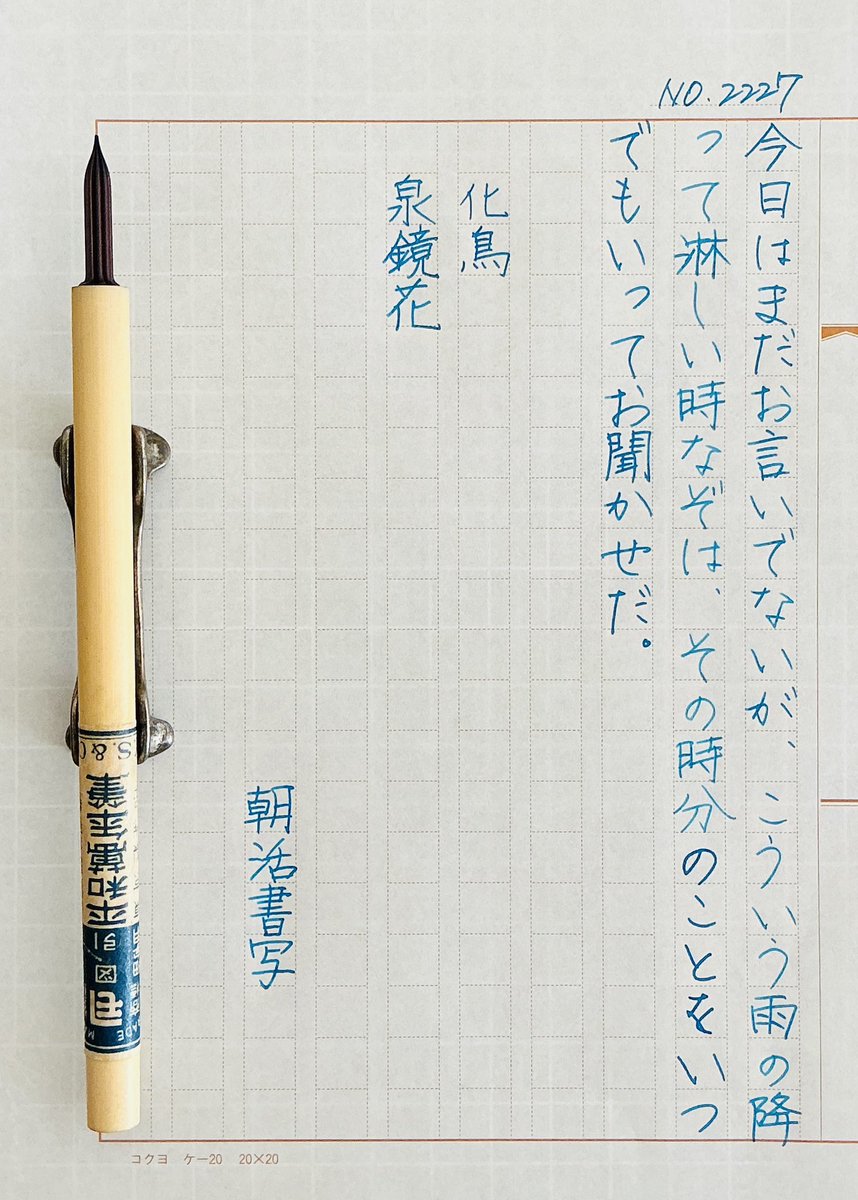 NO.2227
今日はまだお言いでないが、こういう雨の降
って淋しい時なぞは、その時分のことをいつ
でもいってお聞かせだ。
化鳥
泉鏡花
朝活書写
S. & C
平和萬年筆
コクヨ ケー20 20×20